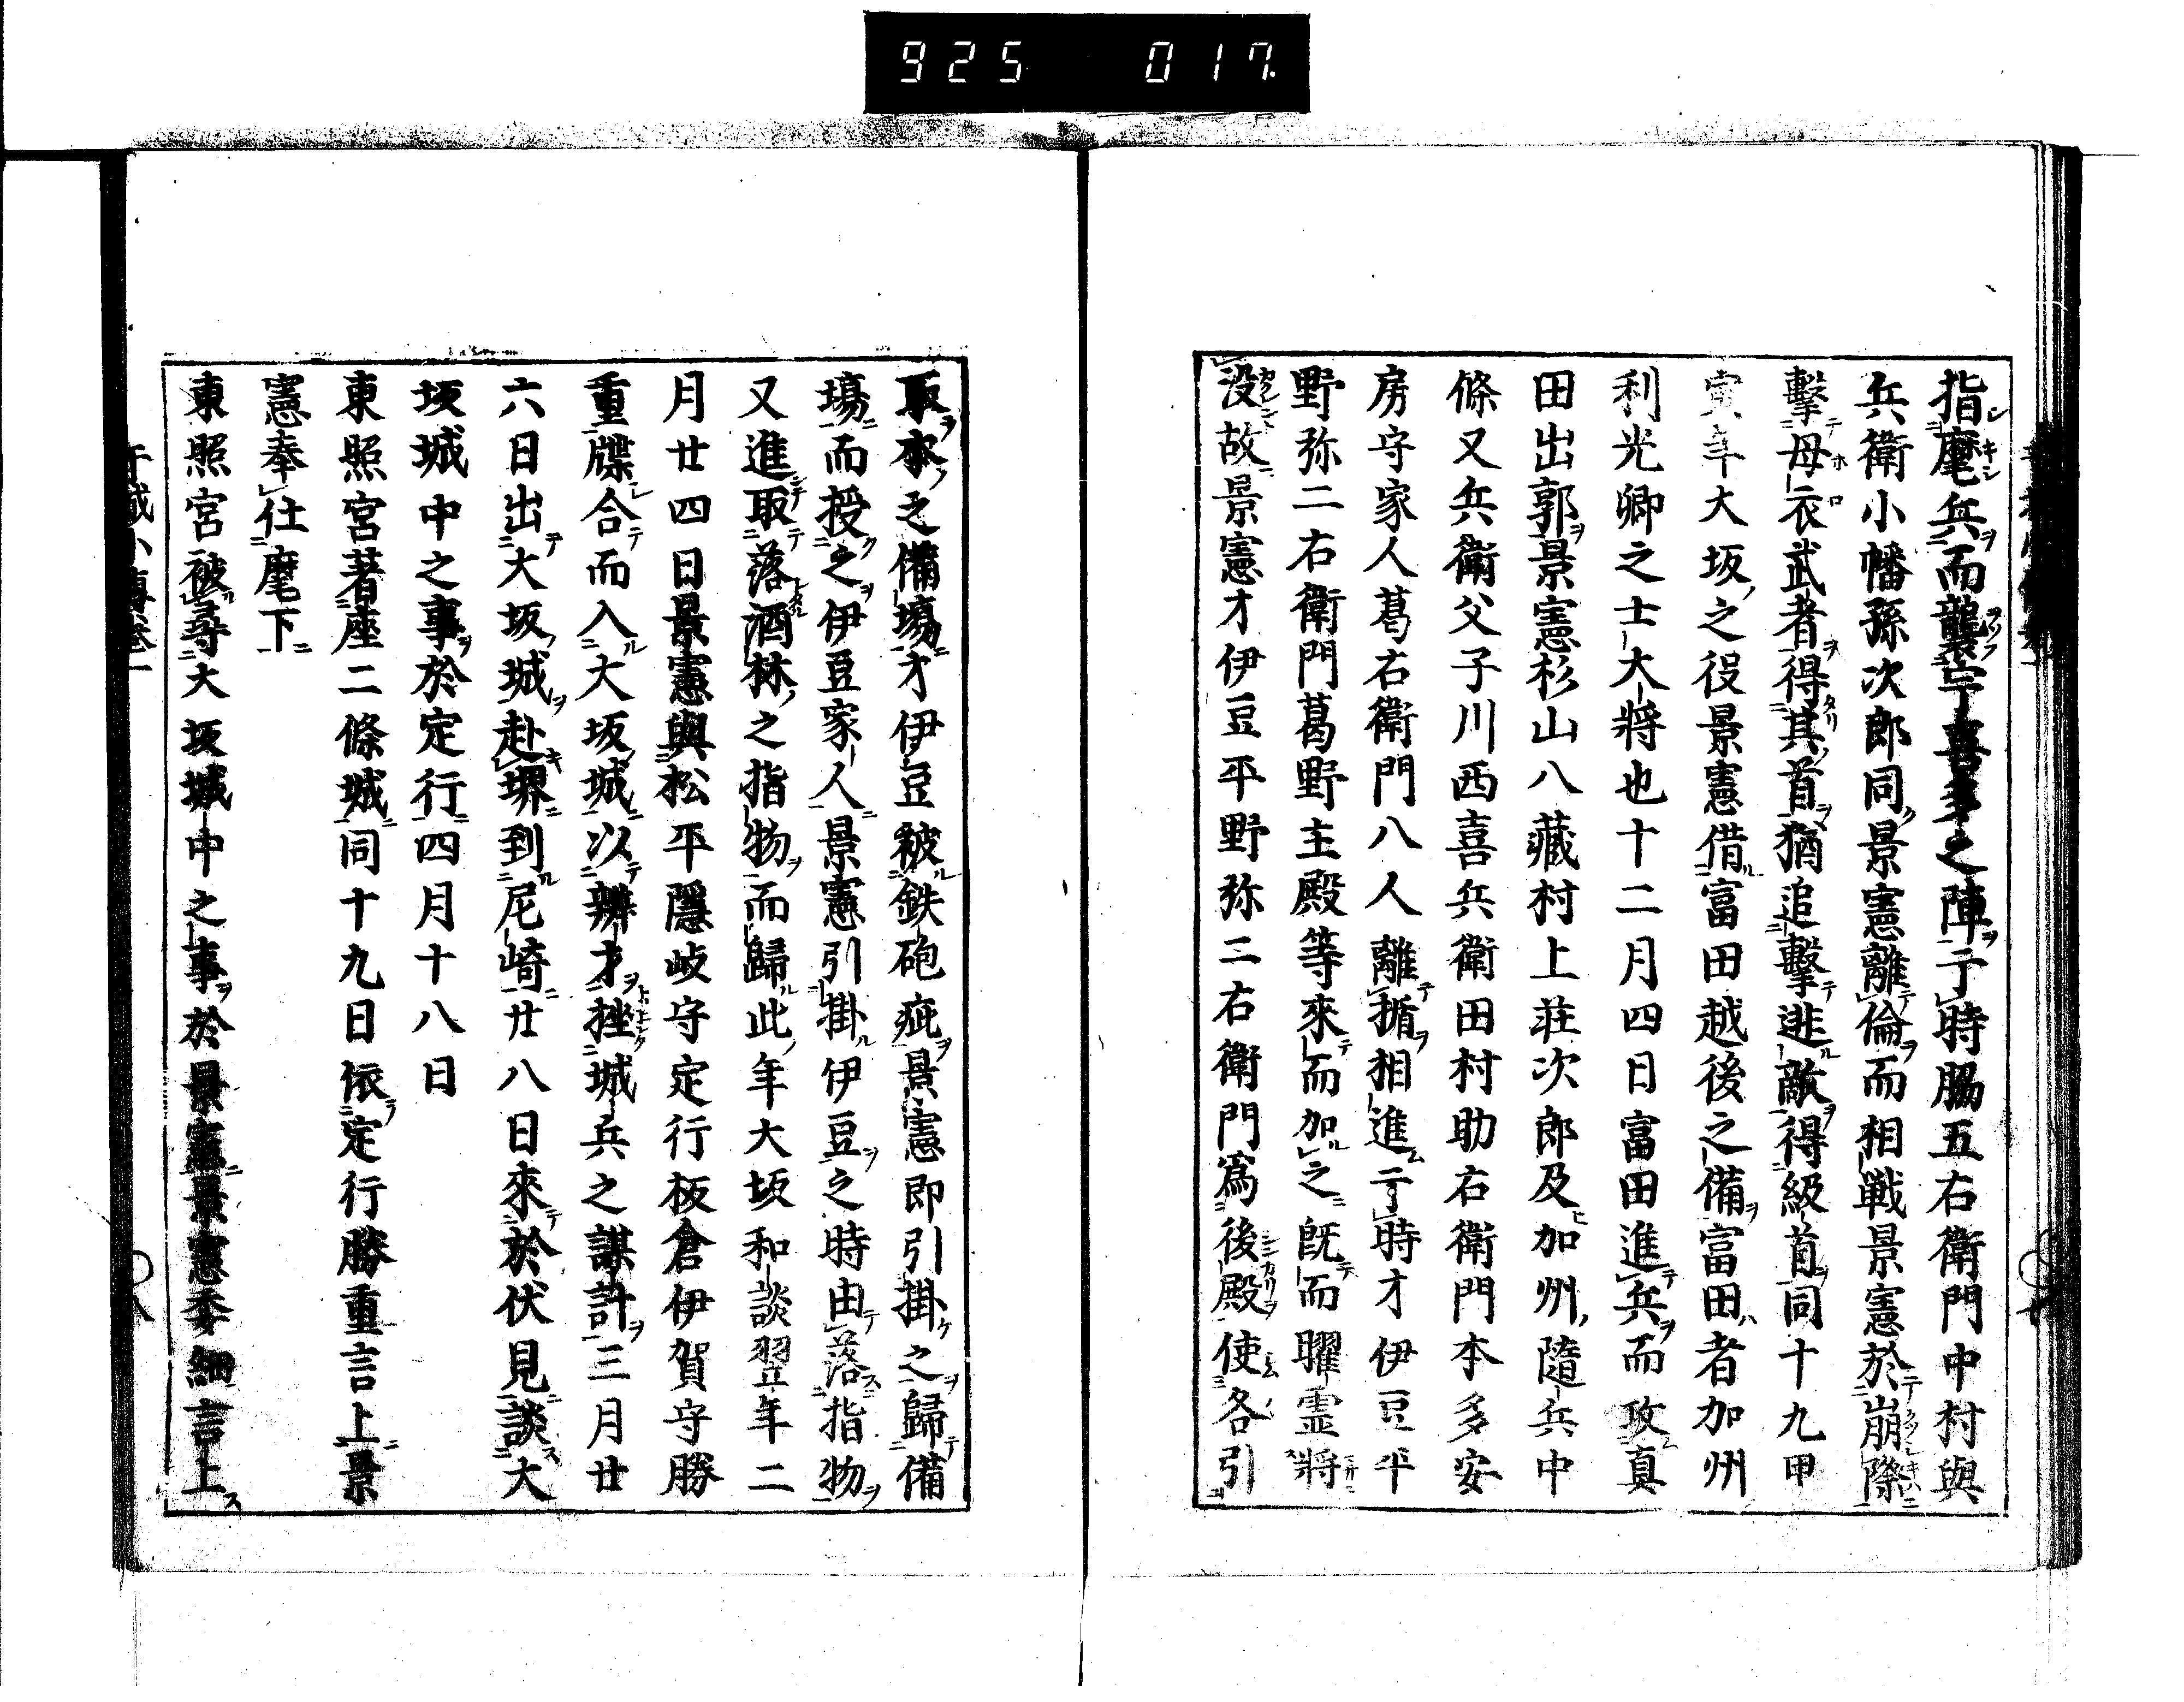 925 017
指麾兵而襲宇喜多之陣于時脇五右衛門中村與
兵衛小幡孫次郎同景憲離倫而相戰景憲於崩際
擊母衣武者得其首猶追擊逃敵得級首同十九甲
寅年大坂之役景憲借富田越後之備富田者加州
利光卿之士大將也十二月四日富田進兵而攻真
田出郭景憲杉山八藏村上莊次郎及加州隨兵中
條又兵衛父子川西喜兵衛田村助右衛門本多安
房守家人葛右衛門八人離楯相進于時才伊豆平
野弥二右衛門葛野主殿等來而加之既而曜霊將
没故景憲才伊豆平野弥二右衛門爲後殿使各引
取本之備場才伊豆被鉄砲疵景憲即引掛之歸備
場而授之伊豆家人景憲引掛伊豆之時由落指物
又進取落酒林之指物而歸此年大坂和談翌年二
月廿四日景憲與松平隱岐守定行板倉伊賀守勝
重牒合而入大坂城以辨才挫城兵之謀計三月廿
六日出大坂城赴堺到尼崎廿八日來於伏見談大
坂城中之事於定行四月十八日
東照宮著座二條城同十九日依定行勝重言上景
憲奉仕麾下
東照宮被尋大坂城中之事於景憲景憲委細言上